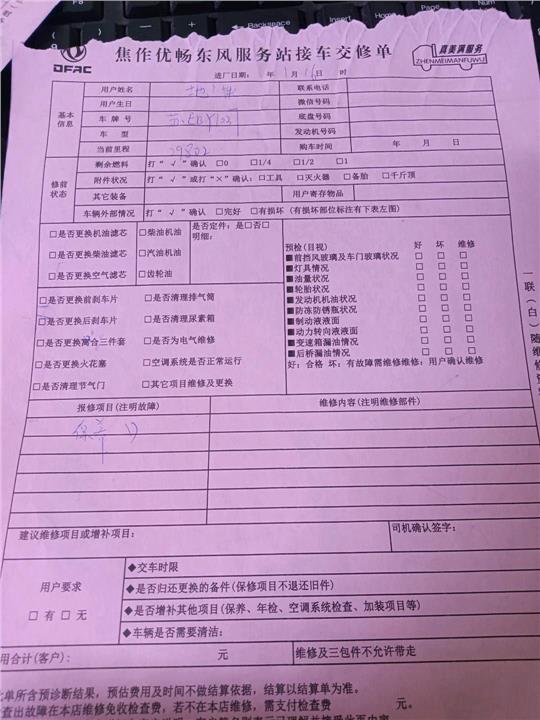 焦作优畅东风服务站接车交修单
DFAC
真美满服务
ZHENMEIMANFUWU
进厂日期: 年 1月16日 时
基本信息
用户姓名 联系电话
用户生日 微信号码
车牌号 底盘号码
车型 发动机号码
当前里程 29822 购车时间 年 月 日
修前状态
剩余燃料 打“√”确认 □0 □1/4 □1/2 □1
附件状况 打“√”或打“×”确认:□工具 □灭火器 □备胎 □千斤顶
其它装备 用户寄存物品
车辆外部情况 打“√”确认 □完好 □有损坏 (有损坏部位标注有下表左图)
□是否更换机油滤芯 □柴油机油 是否定件: 是□否□
明细:
□是否更换柴油滤芯 □汽油机油
□是否更换空气滤芯 □齿轮油
□是否更换前刹车片 □是否清理排气筒
□是否更换后刹车片 □是否清理尿素箱
□是否更换离合三件套 □是否为电气维修
□是否更换火花塞 □空调系统是否正常运行
□是否清理节气门 □其它项目维修及更换
预检(目视) 好 坏 维修
■前挡风玻璃及车门玻璃状况 □ □ □
■灯具情况 □ □ □
■油量状况 □ □ □
■轮胎状况 □ □ □
■发动机机油状况 □ □ □
■防冻防锈瓶状况 □ □ □
■制动液液面 □ □ □
■动力转向液液面 □ □ □
■变速箱漏油情况 □ □ □
■后桥漏油情况 □ □ □
好: 合格 坏: 有故障需维修维修: 用户确认维修
报修项目(注明故障) 维修内容(注明维修部件)
保养
建议维修项目或增补项目: 司机确认签字:
用户要求
□有 □无
◆交车时限
◆是否归还更换的备件(保修项目不退还旧件)
◆是否增补其他项目(保养、年检、空调系统检查、加装项目等)
◆车辆是否需要清洁:
用合计(客户): 元 维修及三包件不允许带走
此单所含预诊断结果,预估费用及时间不做结算依据,结算以结算单为准。
查出故障在本店维修免收检查费,若不在本店维修,需支付检查费 元。
一联(白)随维修